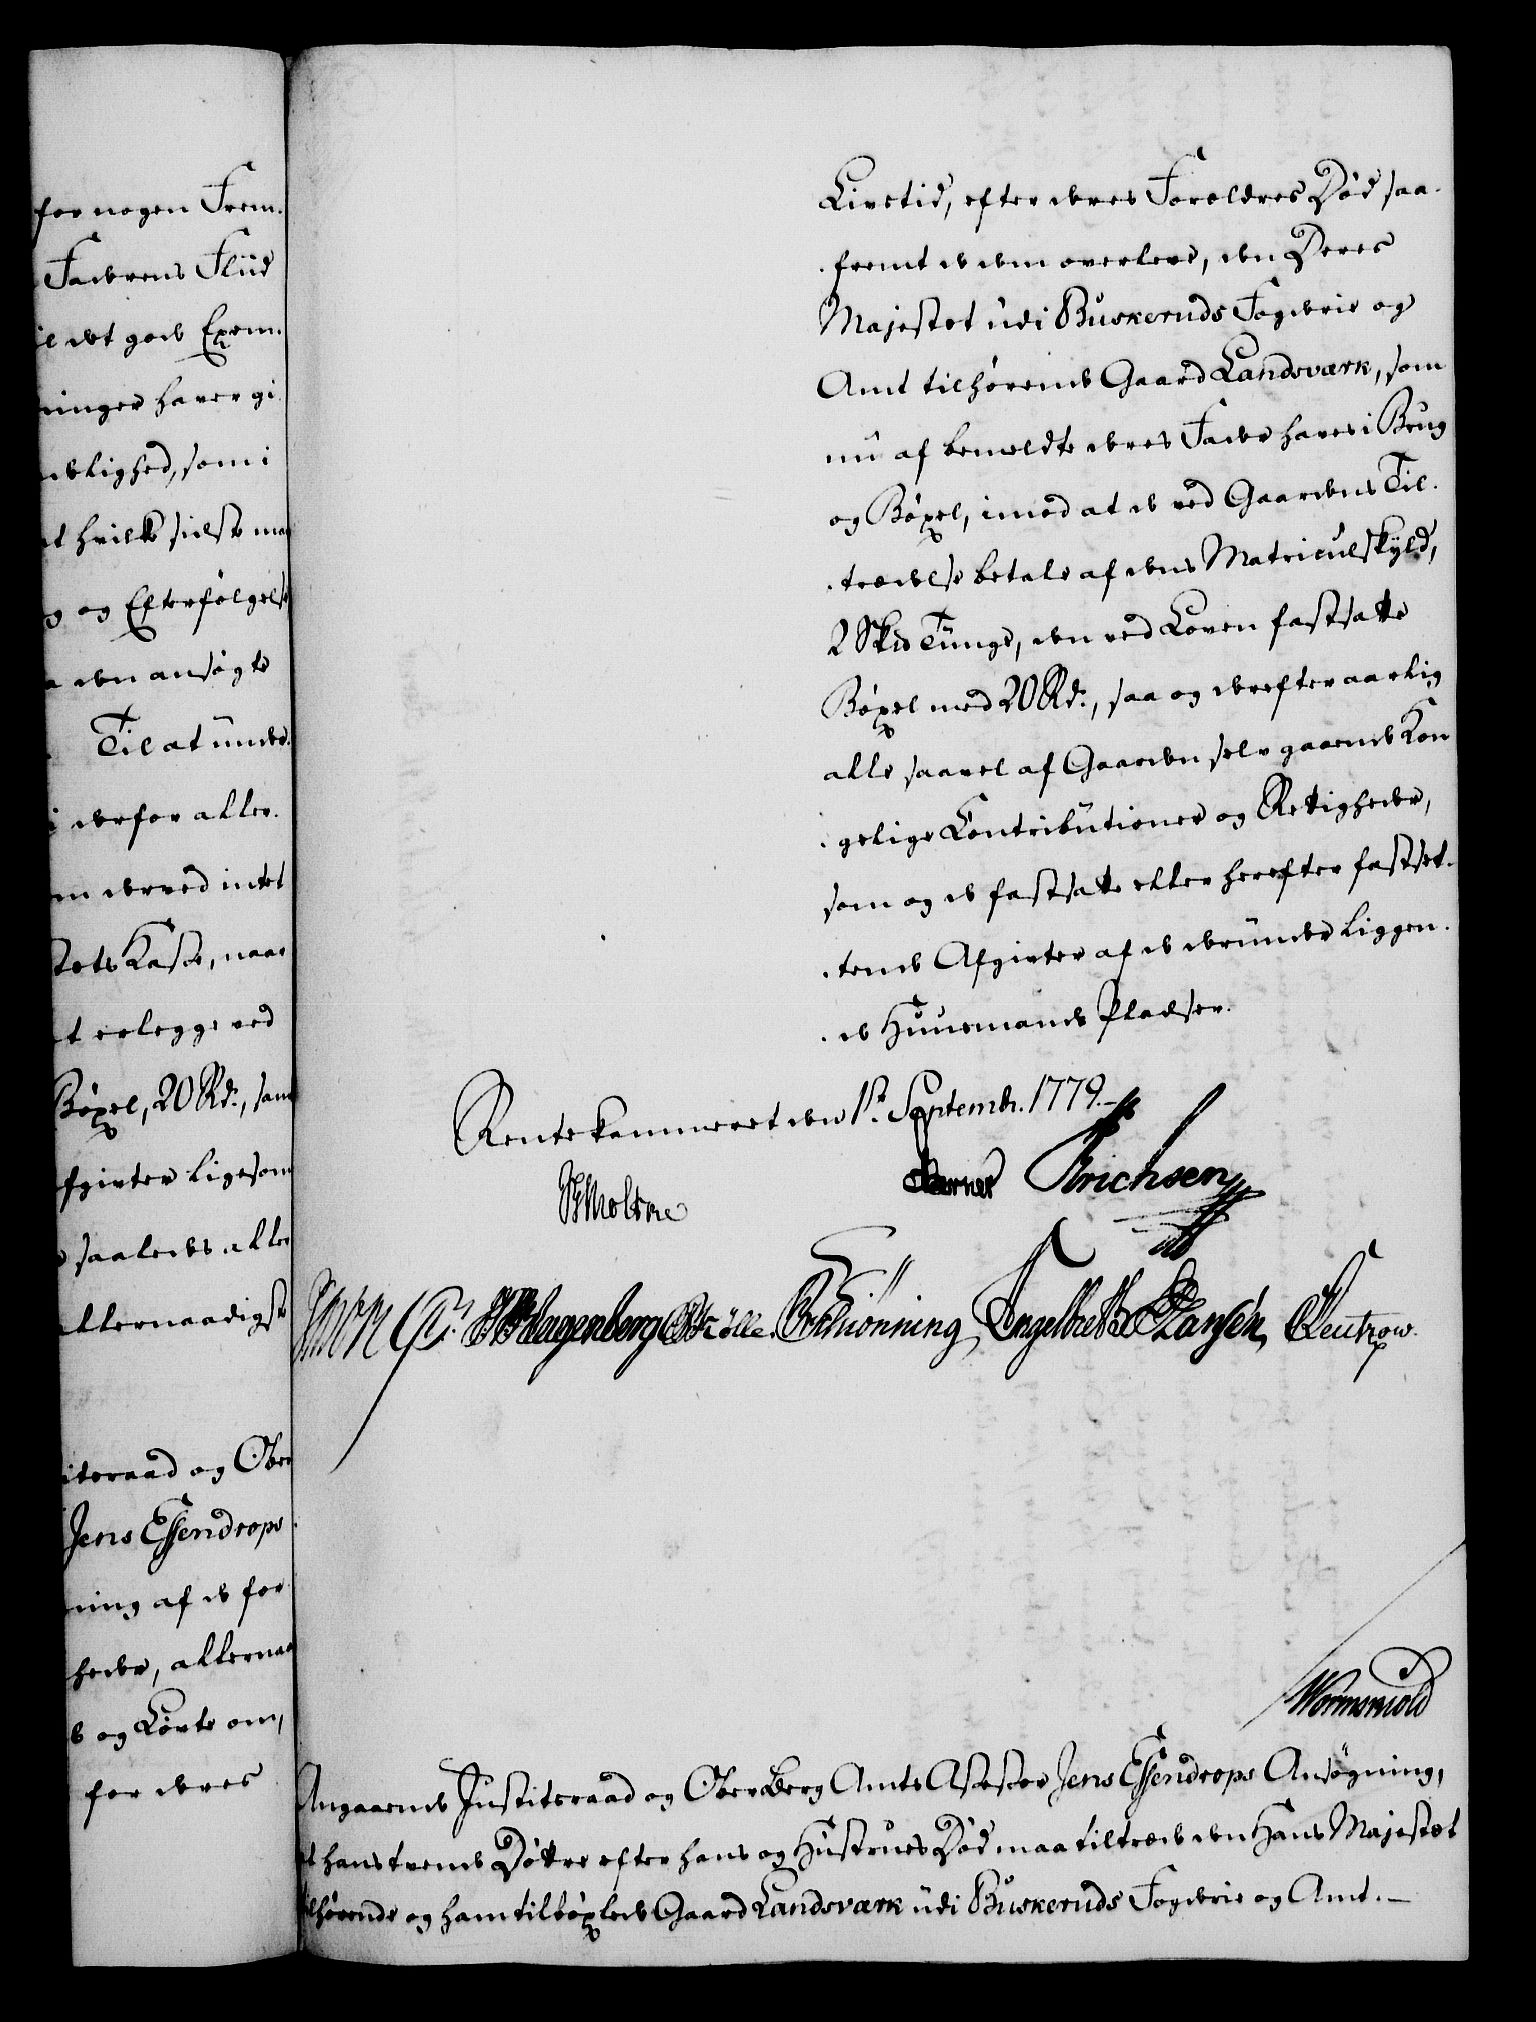 for nogen Frem-
Faderens Fliid
det gode Exem-
ninger haver gi
delighed, som i
hvilke sidste maa
og Efterfølgelse
den ansøgte
Til at under-
derfor aller-
derved intet
Kasse, naar
erlegge ved
Bøxel, 20 Rd., samt
Afgivter ligesom
saaledes aller
allernaadigst
og Ober
Jens Essendrops
ning af de for
heder, allernaa
og Løvte om,
for deres
Livstid, efter deres Forældres Død saa-
fremt de dem overleve, den Deres
Majestet udi Buskeruds Fogderie og
Amt tilhørende Gaard Landsværk, som
nu af bemeldte deres Fader haves i Brug
og Bøxel, imod at de ved Gaardens Til-
trædelse betale af dens Matriculskyld,
2 Skd Tunge, den ved Loven fastsatte
Bøxel med 20 Rd., saa og derefter aarlig
alle saavel af Gaarden selv gaaende Kon
gelige Contributioner og Rettigheder,
som og de fastsatte eller herefter fastset-
tende Afgivter af de derunder liggen-
de Huusmands Pladser.
Rentekammeret den 1st. Septembr. 1779.
Moltke Berner Erichsen
Hagenberg Schiönning Engelbreth Hansen
Wormskiold
Angaaende Justitsraad og Oberberg Amts Assessor Jens Essendrops Ansøgning,
at hans trende Døttre efter hans og Hustrues Død maa tiltræde den Hans Majestæt
tilhørende og ham tilbøxlede Gaard Landsværk udi Buskeruds Fogderie og Amt.